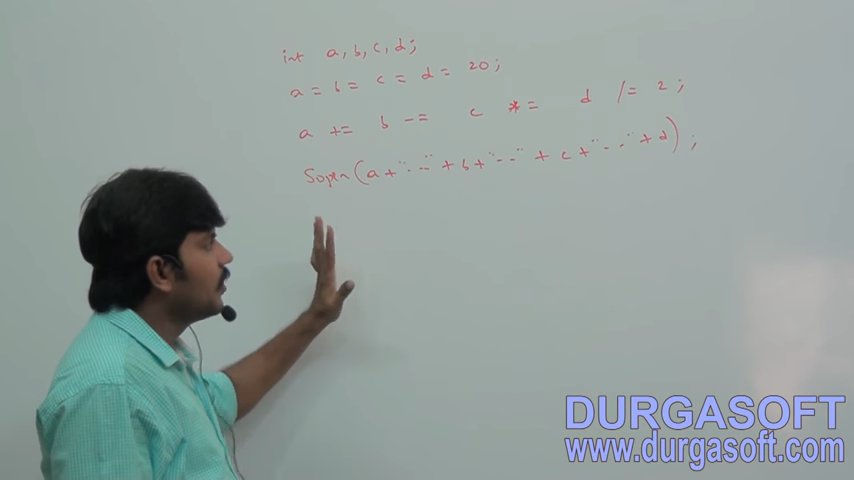 int a, b, c, d;
a = b = c = d = 20;
a += b -= c *= d /= 2;
Sopln(a+"..."+b+"..."+c+"..."+d);
DURGASOFT
www.durgasoft.com